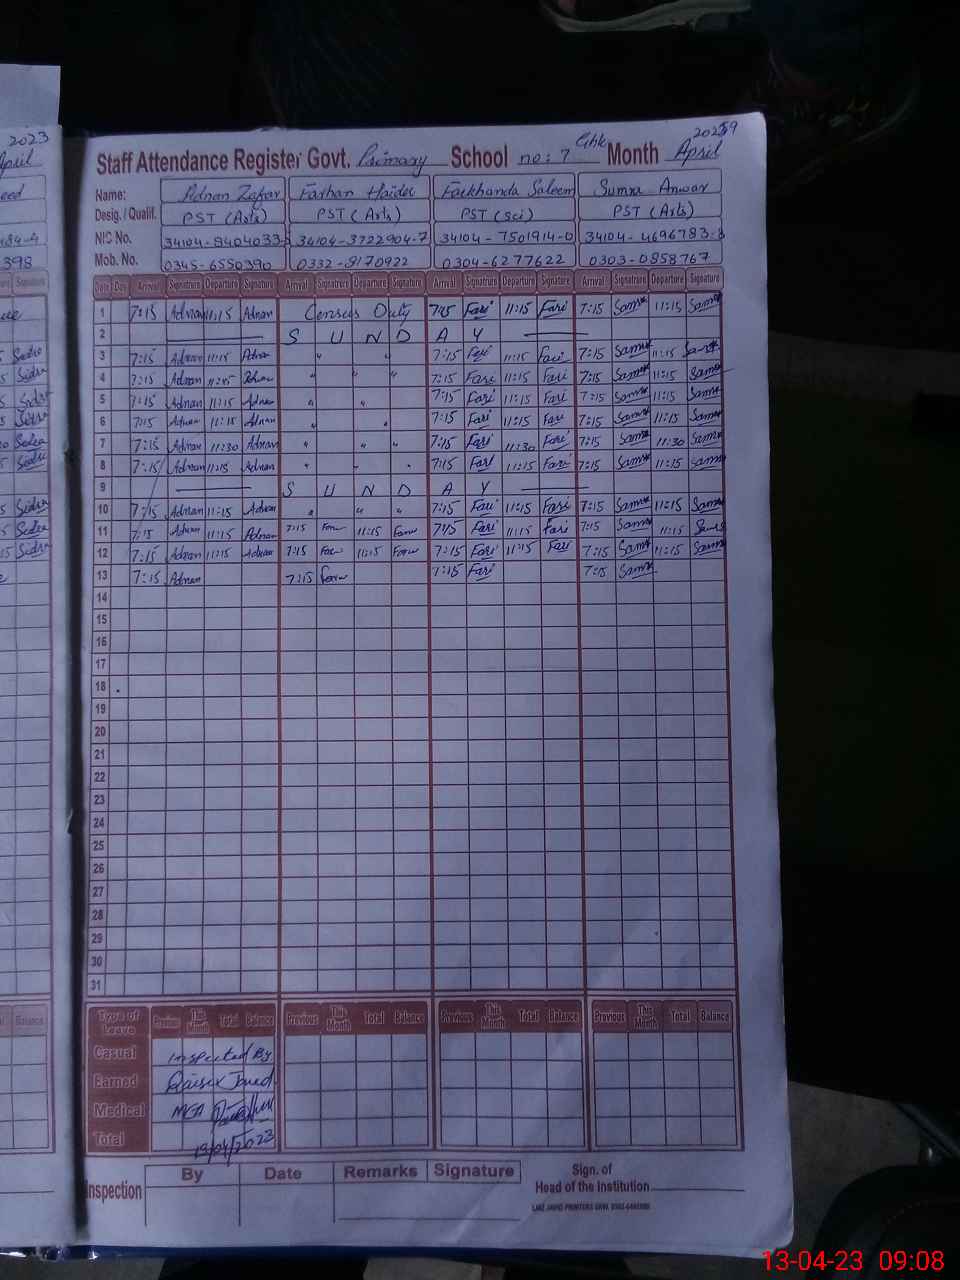 2023
April
Staff Attendance Register Govt. Primary School no: 7 Ghk Month April
Name: Adnan Zafar Farhan Haider Farkhanda Saleem Sumra Anwar
Desig. / Qualif. PST (Arts) PST (Arts) PST (Sci) PST (Arts)
NIC No. 34104-8404033-3 34104-3722904-7 34104-7501914-0 34104-4696783-3
Mob. No. 0345-6550390 0332-8170922 0304-6277622 0303-0858767
398
Date Day Arrival Signature Departure Signature Arrival Signature Departure Signature Arrival Signature Departure Signature Arrival Signature Departure Signature
1 7:15 Adnan 11:15 Adnan Census Duty 7:15 Fari 11:15 Fari 7:15 Samra 11:15 Samra
2 S U N D A Y
3 7:15 Adnan 11:15 Adnan " " 7:15 Fari 11:15 Fari 7:15 Samra 11:15 Samra
4 7:15 Adnan 11:15 Adnan " " " 7:15 Fari 11:15 Fari 7:15 Samra 11:15 Samra
5 7:15 Adnan 11:15 Adnan " " 7:15 Fari 11:15 Fari 7:15 Samra 11:15 Samra
6 7:15 Adnan 11:15 Adnan " " 7:15 Fari 11:15 Fari 7:15 Samra 11:15 Samra
7 7:15 Adnan 11:30 Adnan " " " 7:15 Fari 11:30 Fari 7:15 Samra 11:30 Samra
8 7:15 Adnan 11:15 Adnan " " " 7:15 Fari 11:15 Fari 7:15 Samra 11:15 Samra
9 S U N D A Y
10 7:15 Adnan 11:15 Adnan " " " 7:15 Fari 11:15 Fari 7:15 Samra 11:15 Samra
11 7:15 Adnan 11:15 Adnan 7:15 11:15 7:15 Fari 11:15 Fari 7:15 Samra 11:15 Samra
12 7:15 Adnan 11:15 Adnan 7:15 11:15 7:15 Fari 11:15 Fari 7:15 Samra 11:15 Samra
13 7:15 Adnan 7:15 7:15 Fari 7:15 Samra
14
15
16
17
18
19
20
21
22
23
24
25
26
27
28
29
30
31
Type of Leave Previous This Month Total Balance Previous This Month Total Balance Previous This Month Total Balance Previous This Month Total Balance
Casual Inspected By
Earned
Medical MEA
Total 13/04/2023
Inspection By Date Remarks Signature Sign. of
Head of the Institution
13-04-23 09:08